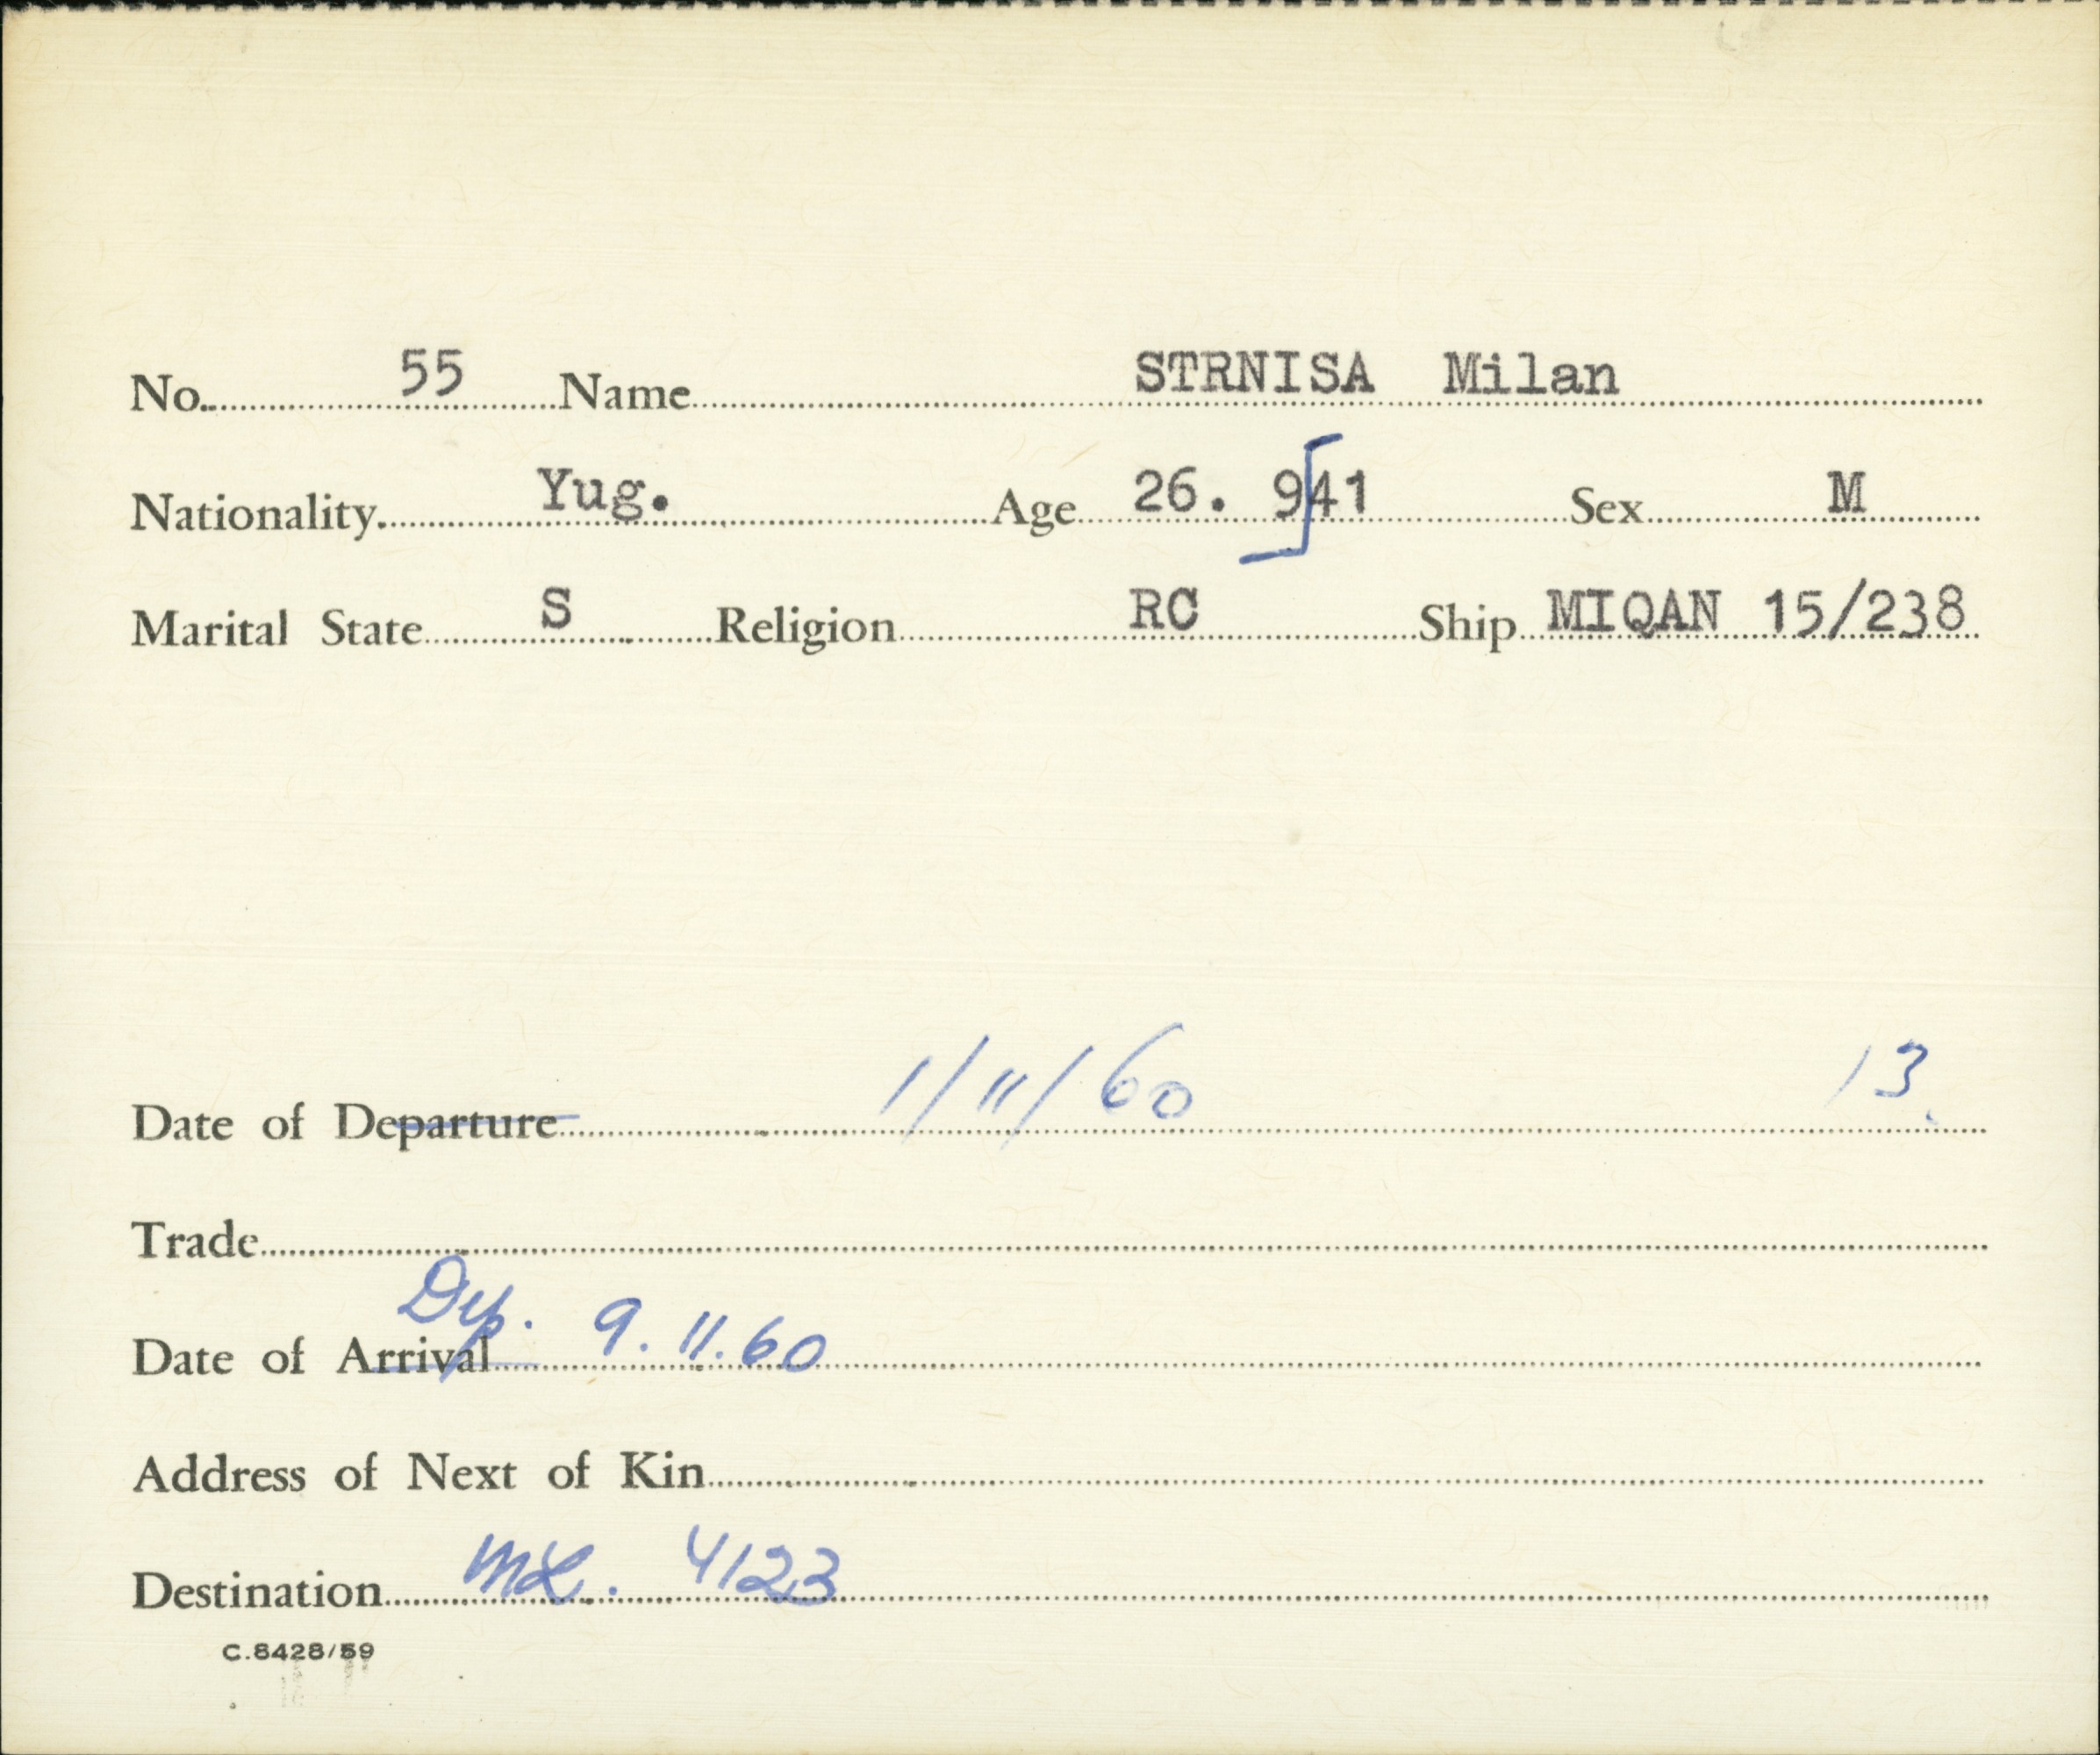 No. 55 Name STRNISA Milan
Nationality. Yug. Age 26. 9 41 Sex M
Marital State S Religion RC Ship MIQAN 15/238
Date of Departure 1/11/60 13.
Trade
Dep.
Date of Arrival 9.11.60
Address of Next of Kin
Destination 4123
C.8428/59